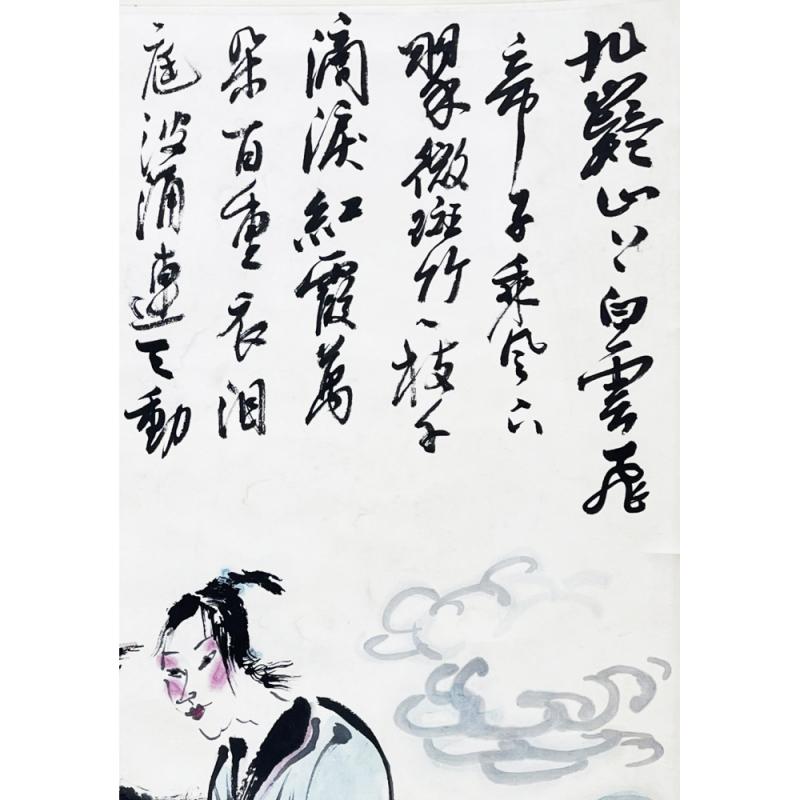 九嶷山上白雲飛
帝子乘風下
翠微斑竹一枝千
滴淚紅霞萬
朵百重衣洞
庭波涌連天動